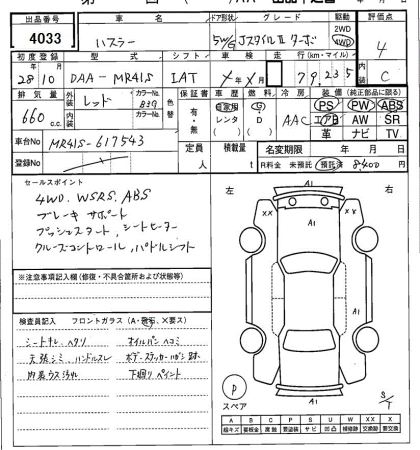 出品番号 車名 ドア形状 グレード 駆動 評価点
4033 ハスラー 5W/G JスタイルⅡ ターボ 2WD 4WD 4
初度登録 型式 シフト 車検 走行(km・マイル) 内装
28年10月 DAA-MR41S IAT ×年×月 79,235 C
排気量 外装色 カラーNo. 色替 保証書 車歴 燃料 冷房 装備(純正部品に限る)
660c.c. レッド 有・無 自家用 レンタ G D AAC PS PW ABS
内装色 カラーNo. エアB AW SR
革 ナビ TV
車台No MR41S-617543 定員 人 積載量 t 名変期限 年 月 日
登録No R料金 未預託 預託済 8,400円
セールスポイント
4WD. WSRS. ABS
ブレーキサポート
プッシュスタート、シートヒーター
クルーズコントロール、パドルシフト
左 右
A1
XX A1 XX
A1
A1
※注意事項記入欄(修復・不具合箇所および状態等)
検査員記入 フロントガラス(A・飛石・X要ス)
シートキレ、ヘタリ オイルパンヘコミ
天張シミ、ハンドルスレ ボデーステッカーハガシ跡
内装ウス汚れ 下廻りペイント
P
スペア
S/T
A B C P S U W X XX
線キズ 要板金 腐蝕 要塗装 サビ 凹凸 補修跡 交換跡 要交換